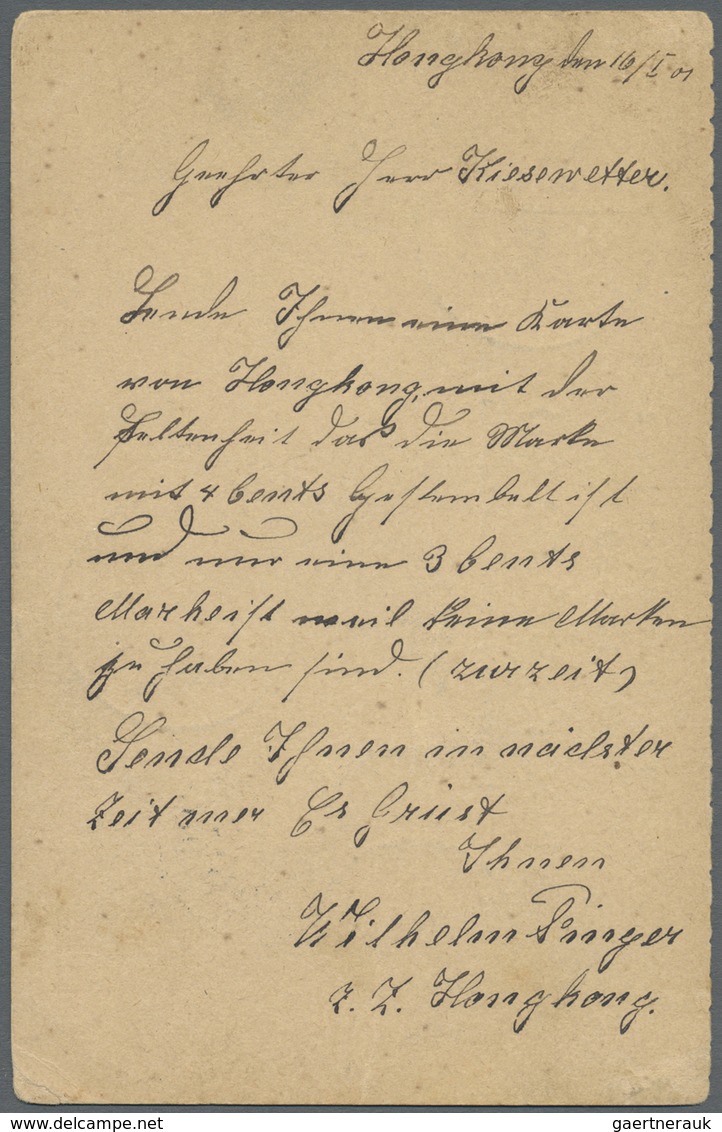 Hongkong den 16/I 01
Geehrter Herr Kiesewetter.
Sende Ihnen eine Karte
von Hongkong, mit der
Seltenheit daß die Marke
mit 4 Cents Gestembelt ist
und nur eine 3 Cents
Marke ist weil keine Marken
zu haben sind. (zurzeit)
Sende Ihnen in nächster
Zeit mer Es Grüst
Ihnen
Wilhelm Finger
z. Z. Hongkong.
www.delcampe.net
gaertnerauk